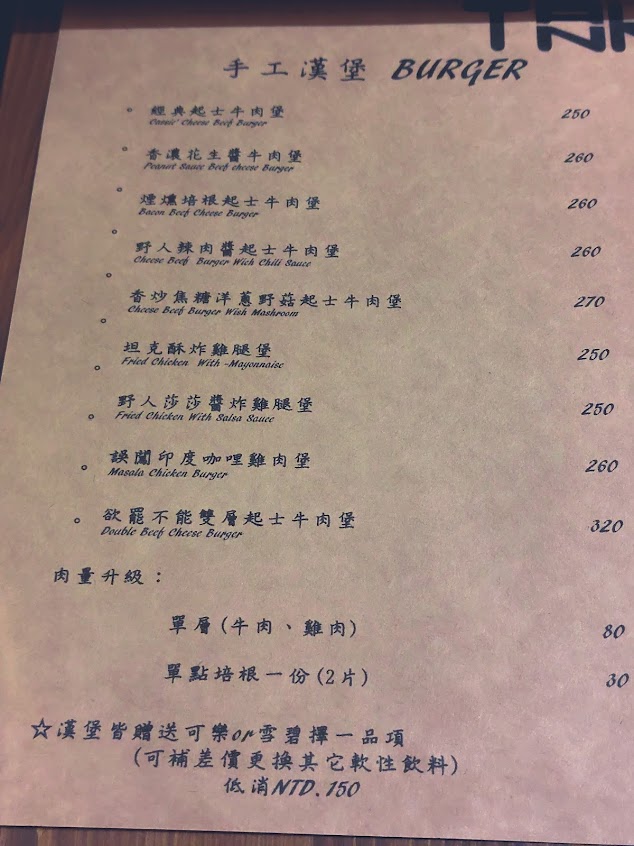 手工漢堡 BURGER
經典起士牛肉堡 250
Cassic' Cheese Beef Burger
香濃花生醬牛肉堡 260
Peanut Sauce Beef cheese Burger
煙燻培根起士牛肉堡 260
Bacon Beef Cheese Burger
野人辣肉醬起士牛肉堡 260
Cheese Beef Burger Wich Chili Sauce
香炒焦糖洋蔥野菇起士牛肉堡 270
Cheese Beef Burger Wish Mashroom
坦克酥炸雞腿堡 250
Fried Chicken With -Mayonnaise
野人莎莎醬炸雞腿堡 250
Fried Chicken With Salsa Sauce
誤闖印度咖哩雞肉堡 260
Masala Chicken Burger
欲罷不能雙層起士牛肉堡 320
Double Beef Cheese Burger
肉量升級：
單層(牛肉、雞肉) 80
單點培根一份(2片) 30
☆漢堡皆贈送可樂or雪碧擇一品項
(可補差價更換其它軟性飲料)
低消NTD.150